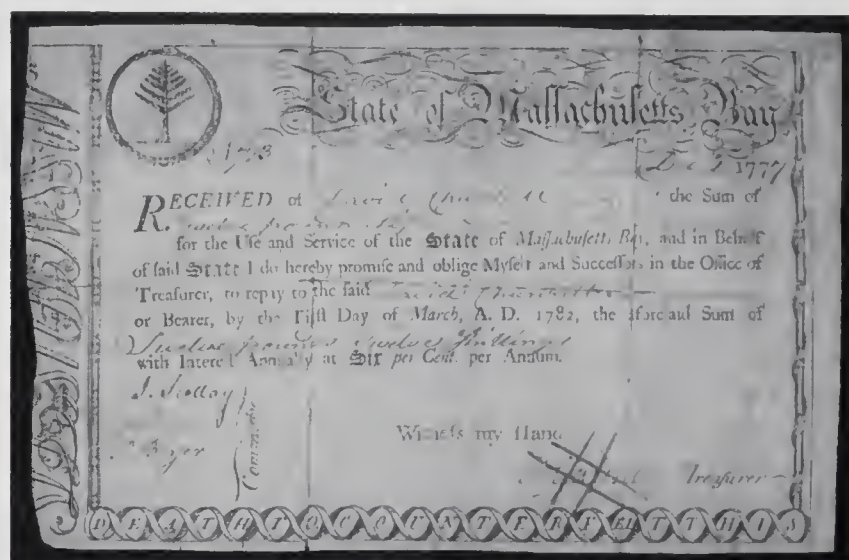 State of Massachusetts Bay
1777
RECEIVED of the Sum of
for the Uſe and Service of the State of Maſſachuſetts Bay, and in Behalf
of ſaid State I do hereby promiſe and oblige Myſelf and Succeſſors in the Office of
Treaſurer, to repay to the ſaid
or Bearer, by the Firſt Day of March, A. D. 1782, the aforeſaid Sum of
Twelve pounds twelve Shillings
with Intereſt Annually at Six per Cent. per Annum.
J. Scollay
Committee
Witneſs my Hand
Treaſurer
DEATH TO COUNTERFEIT THIS